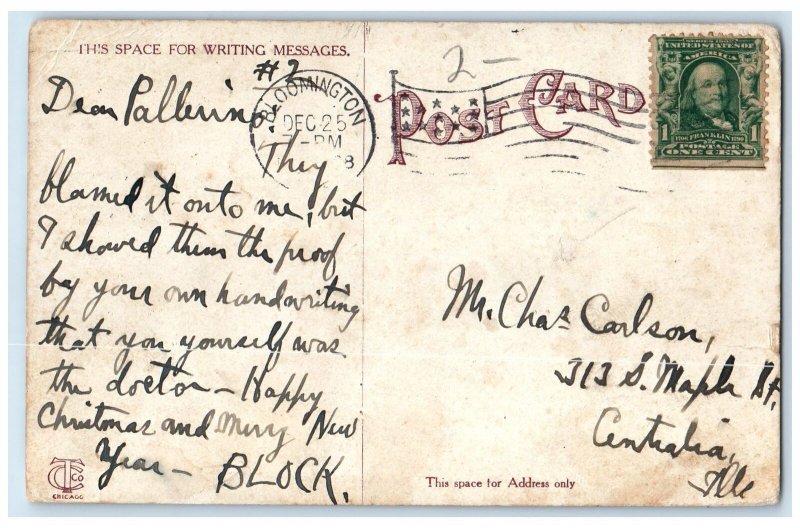 THIS SPACE FOR WRITING MESSAGES.
#2
Dear Pallerino
They
blamed it onto me, but
I showed them the proof
by your own handwriting
that you yourself was
the doctor - Happy
Christmas and Merry New
Year - BLOCK.
CTCo
CHICAGO
BLOOMINGTON
DEC 25
-PM
8
2-
POST CARD
SERIES 1902
UNITED STATES OF
AMERICA
1706 FRANKLIN 1790
1 POSTAGE 1
ONE CENT
Mr. Chas Carlson,
313 S. Maple St,
Centralia,
Ills
This space for Address only